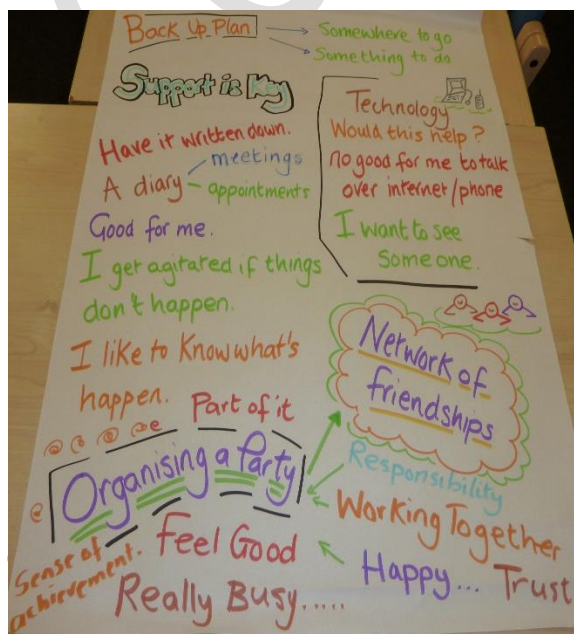 Back Up Plan
Somewhere to go
Something to do
Support is Key
Have it written down.
A diary
meetings
appointments
Good for me.
I get agitated if things
don't happen.
I like to Know what's
happen.
Technology
Would this help?
no good for me to talk
over internet/phone
I want to see
someone.
Network of
friendships
Part of it
Organising a Party
Responsibility
Working Together
Happy... Trust
Feel Good
Sense of
achievement.
Really Busy.....